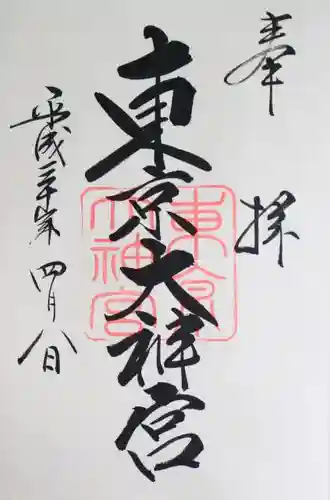 奉拝
東京大神宮
東京大神宮
平成三十年四月八日